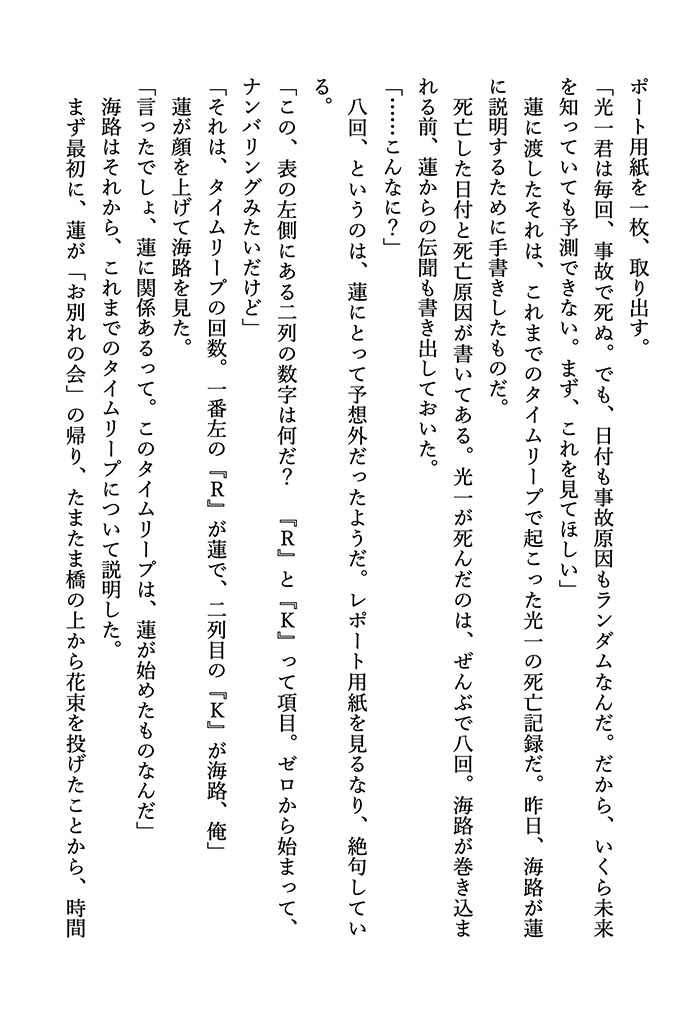 ポート用紙を一枚、取り出す。
「光一君は毎回、事故で死ぬ。でも、日付も事故原因もランダムなんだ。だから、いくら未来
を知っていても予測できない。まず、これを見てほしい」
　蓮に渡したそれは、これまでのタイムリープで起こった光一の死亡記録だ。昨日、海路が蓮
に説明するために手書きしたものだ。
　死亡した日付と死亡原因が書いてある。光一が死んだのは、ぜんぶで八回。海路が巻き込ま
れる前、蓮からの伝聞も書き出しておいた。
「……こんなに？」
　八回、というのは、蓮にとって予想外だったようだ。レポート用紙を見るなり、絶句してい
る。
「この、表の左側にある二列の数字は何だ？　『R』と『K』って項目。ゼロから始まって、
ナンバリングみたいだけど」
「それは、タイムリープの回数。一番左の『R』が蓮で、二列目の『K』が海路、俺」
　蓮が顔を上げて海路を見た。
「言ったでしょ、蓮に関係あるって。このタイムリープは、蓮が始めたものなんだ」
　海路はそれから、これまでのタイムリープについて説明した。
　まず最初に、蓮が「お別れの会」の帰り、たまたま橋の上から花束を投げたことから、時間